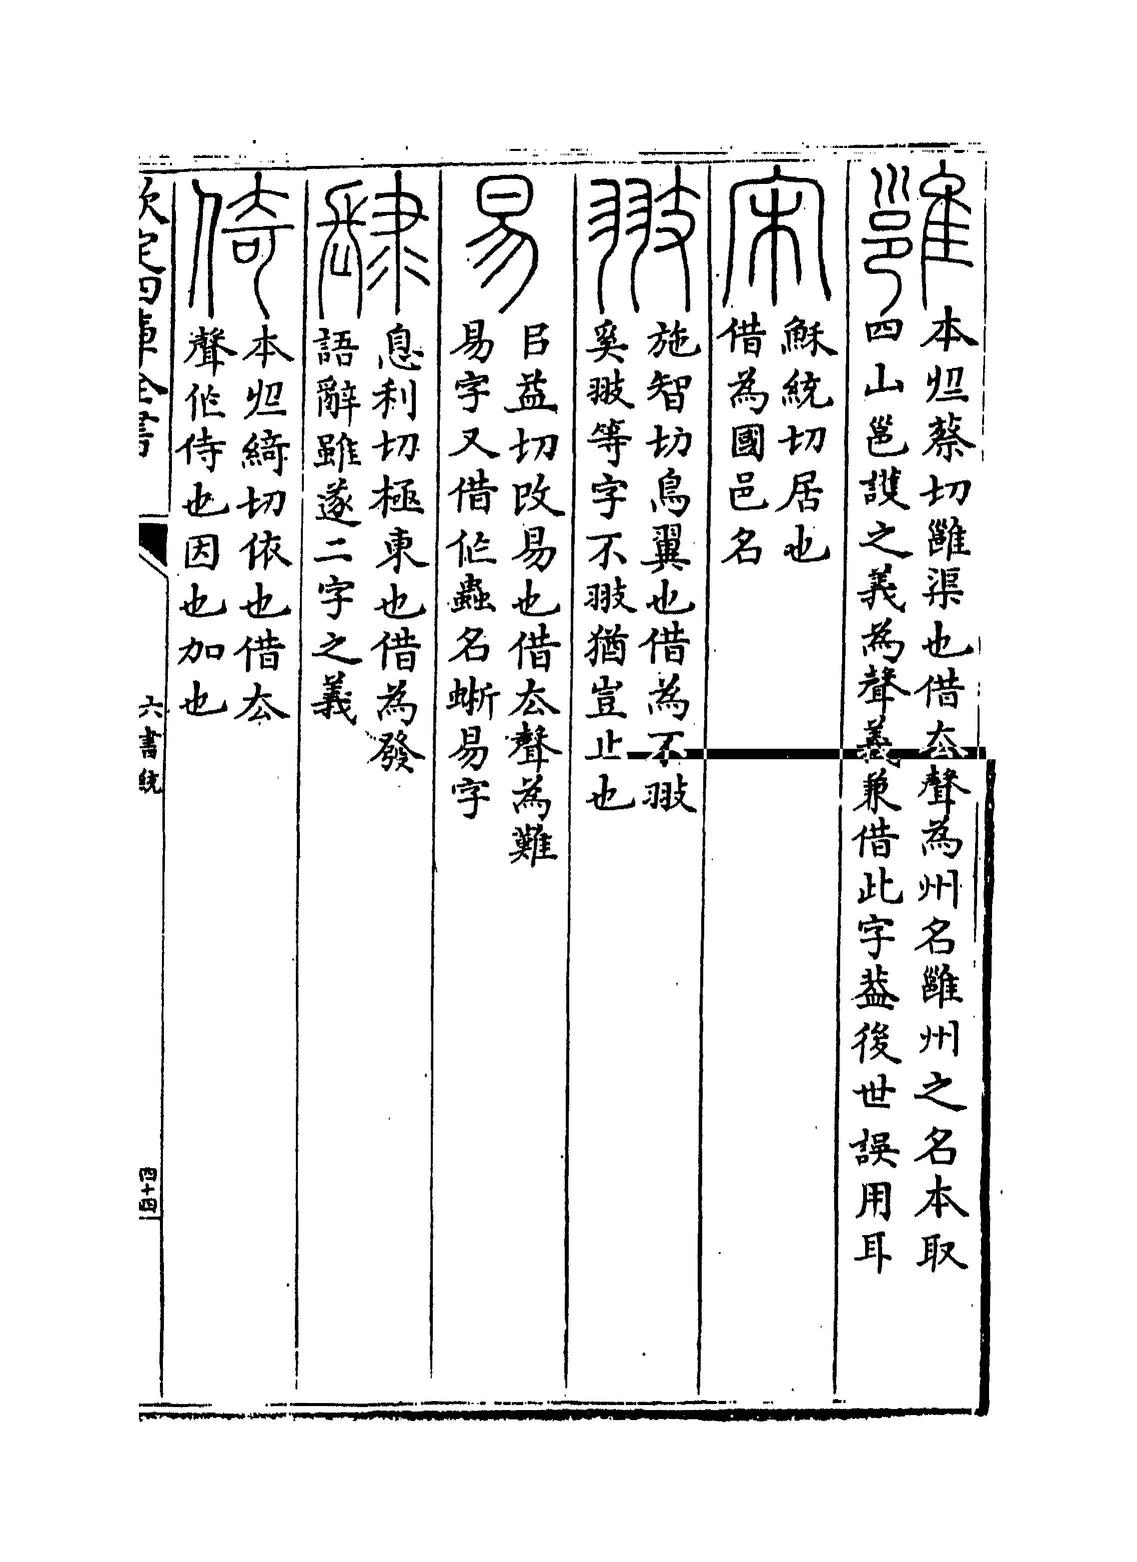 雝
本於蔡切雝渠也借厺聲為州名雝州之名本取
四山邕護之義為聲義兼借此字葢後世誤用耳
宋
穌統切居也
借為國邑名
翄
施智切鳥翼也借為不翄
奚翄等字不翄猶豈止也
易
㠯益切改易也借厺聲為難
易字又借作蟲名蜥易字
肆
息利切極東也借為發
語辭雖遂二字之義
倚
本於綺切依也借厺
聲作侍也因也加也
欽定四庫全書
六書統
四十四